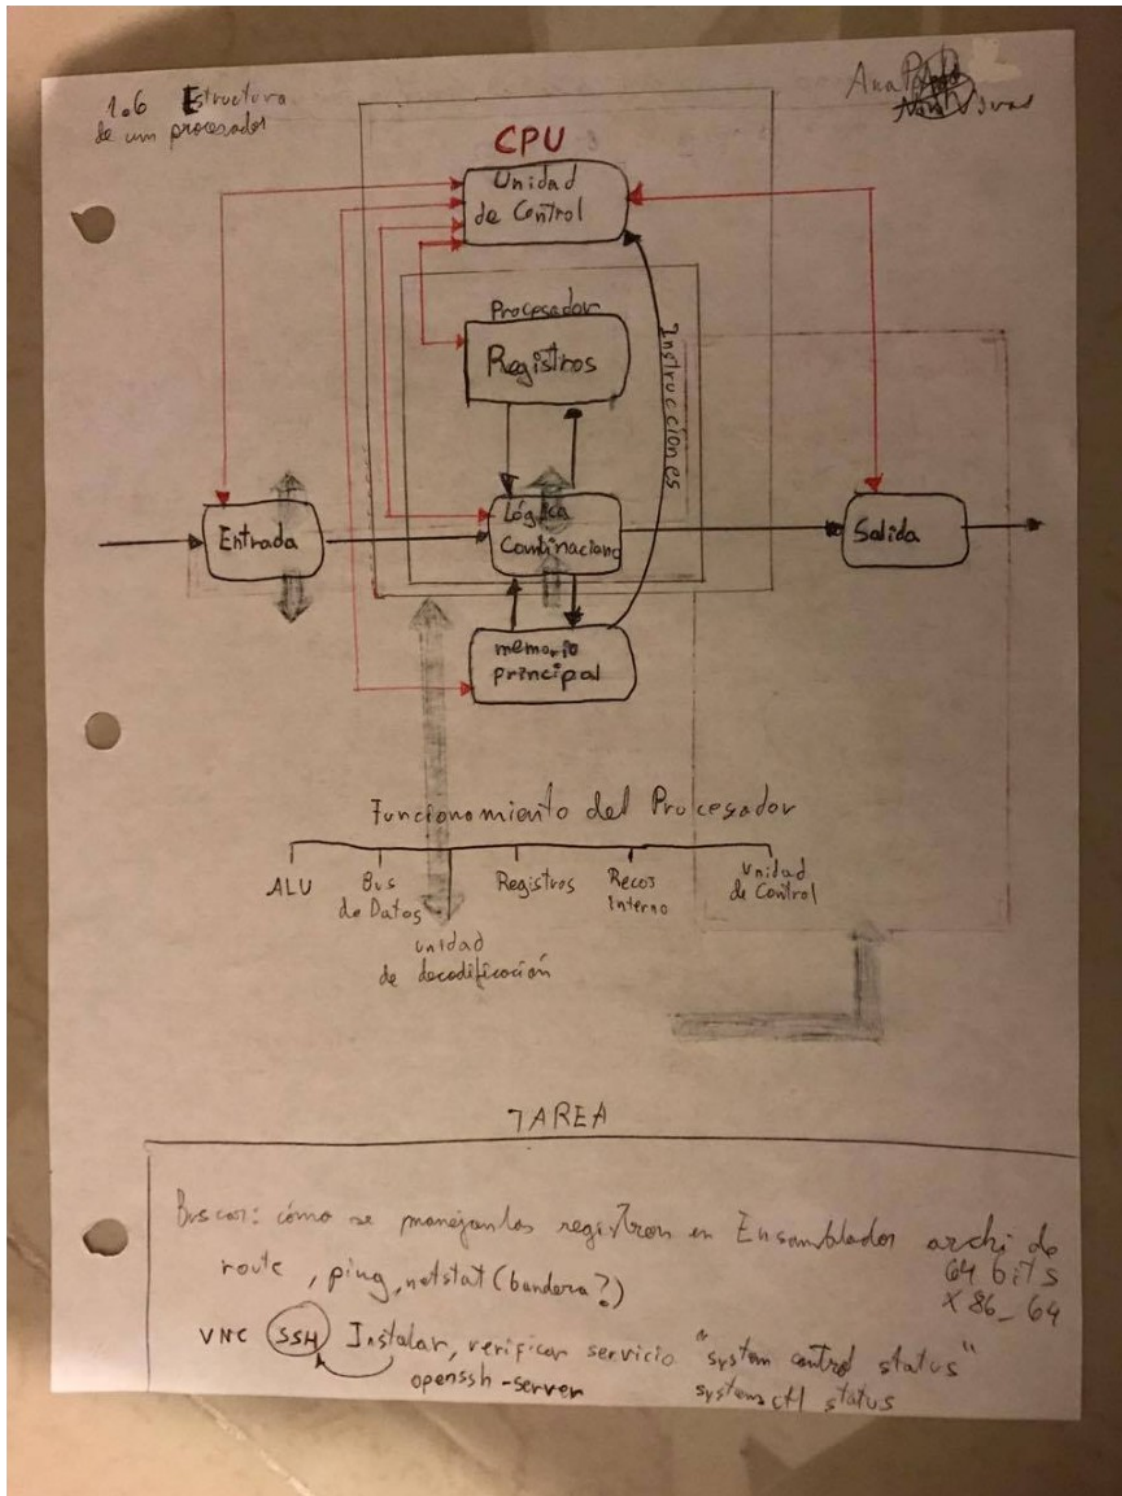 1.6 Estructura
de um procesador
Ana
CPU
Unidad
de Control
Procesador
Registros
Instrucciones
Entrada
Lógica
Combinaciona
Salida
memoria
principal
Funcionamiento del Procesador
ALU
Bus
de Datos
unidad
de decodificación
Registros
Interno
Unidad
de Control
TAREA
Buscar: cómo se manejan los registros en Ensamblador archi de
64 bits
x86_64
route, ping, netstat (bandera?)
VNC SSH Instalar, verificar servicio "system control status"
openssh-server
systemctl status